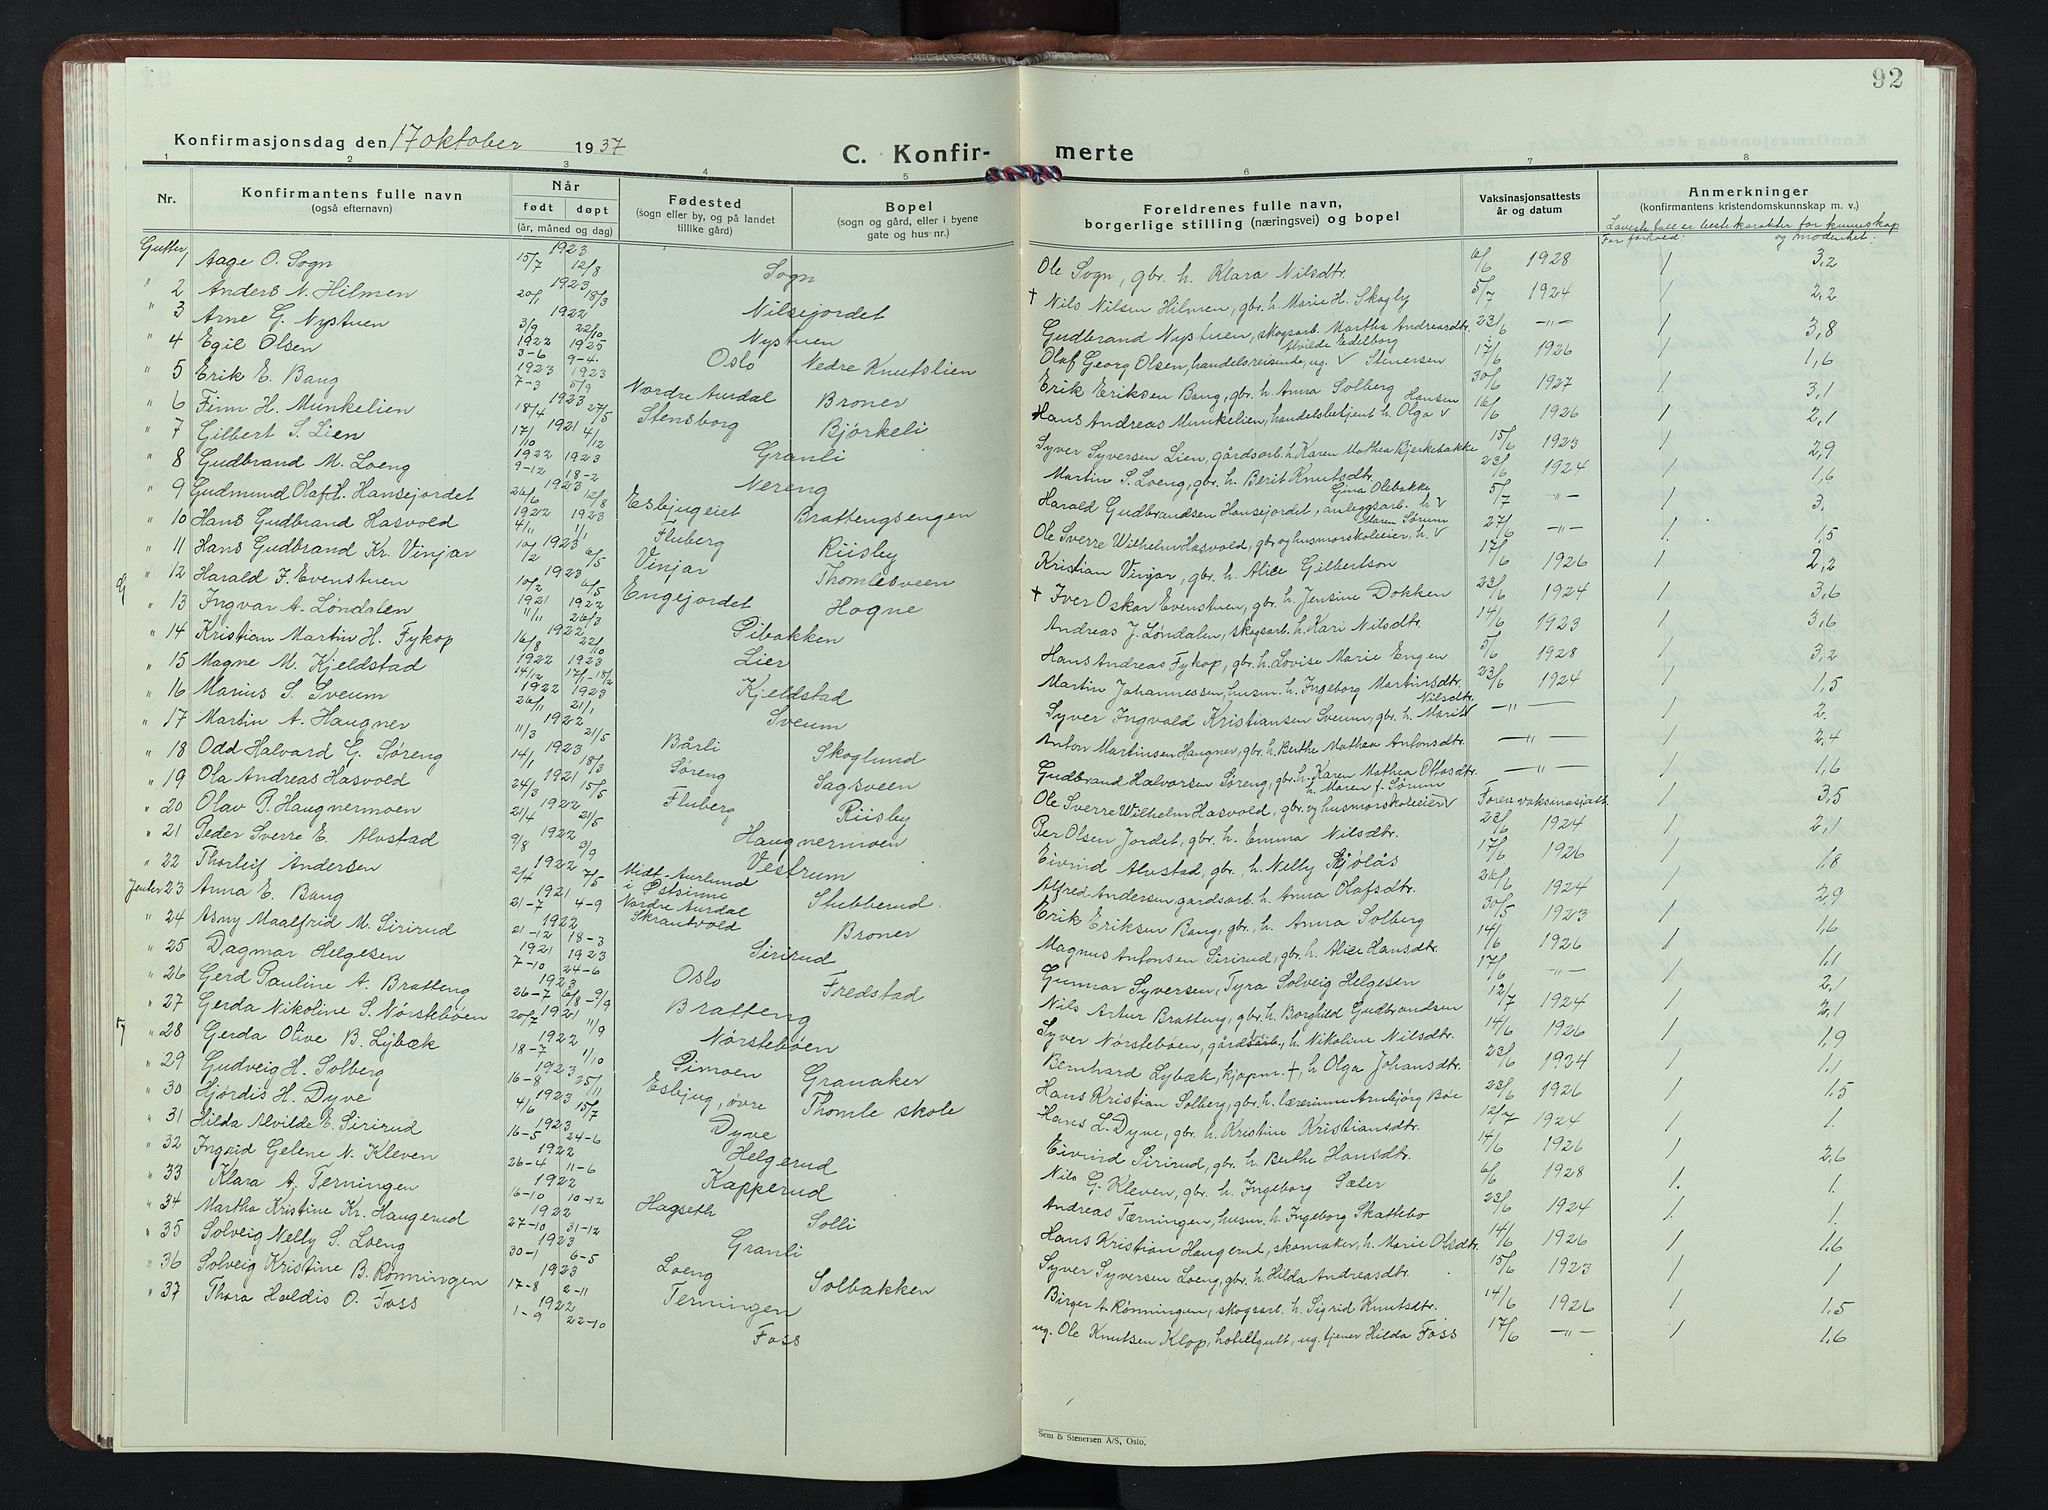 92
Konfirmasjonsdag den 17 oktober 1937
C. Konfirmerte
1 2 3 4 5 6 7 8
Nr. Konfirmantens fulle navn (også efternavn) Når født døpt (år, måned og dag) Fødested (sogn eller by, og på landet tillike gård) Bopel (sogn og gård, eller i byene gate og hus nr.) Foreldrenes fulle navn, borgerlige stilling (næringsvei) og bopel Vaksinasjonsattests år og datum Anmerkninger (konfirmantens kristendomskunnskap m. v.)
Laveste tall er beste karakter for kunnskap og modenhet.
For forhold:
Gutter 1 Aage O. Sogn 1923 15/7 12/8 Sogn Ole Sogn, gbr. h. Klara Nilsdtr. 6/6 1928 1 3,2
" 2 Anders N. Hilmen 1923 20/1 18/3 Nilsejordet † Nils Nilsen Hilmen, gbr. h. Marie H. Skogby 5/7 1924 1 2,2
" 3 Arne G. Nystuen 1922 3/9 22/10 Nystuen Gudbrand Nystuen, skogsarb. Martha Andreasdtr. 23/6 -"- 1 3,8
" 4 Egil Olsen 1922 3-6 1925 9-4. Oslo Nedre Knutslien Olaf Georg Olsen, handelsreisende, ug. Alvilde Edelborg Stenersen 17/6 1926 1 1,6
" 5 Erik E. Bang 1923 7-3 1923 5/9 Nordre Aurdal Broner Erik Eriksen Bang, gbr. h. Anna Solberg 30/6 1927 1. 3,1
" 6 Finn H. Munkelien 1923 18/4 27/5 Stensborg Bjørkeli Hans Andreas Munkelien, handelsbetjent h. Olga Hansen 16/6 1926 1 2,1
" 7 Gilbert S. Lien 1921 17/10 4/12 Granli Syver Syversen Lien, gårdsarb. h. Karen Mathea Bjerkebakke 15/6 1923 1 2,9
" 8 Gudbrand M. Loeng 1922 9-12 1923 18-2 Nereng Martin S. Loeng, gbr. h. Berit Knutsdtr. 23/6 1924 1 1,6
" 9 Gudmund Olaf H. Hansejordet 1923 26/6 12/8 Esbjugeiet Brattengsengen Harald Gudbrandsen Hansejordet, anleggsarb. h. Gina Olebakke 5/7 -"- 1 3.
" 10 Hans Gudbrand Hasvold 1922 4/11 1923 1/1 Fluberg Riisby Ole Sverre Wilhelm Hasvold, gbr. og husmorskoleeier, h. Maren Sørum 27/6 -"- 1. 1,5
" 11 Hans Gudbrand Kr. Vinjar 1923 10/2 6/5 Vinjar Thomlesveen Kristian Vinjar, gbr. h. Alice Gilbertson 17/6 1926 1 2,2
" 12 Harald I. Evenstuen 1923 10/2 6/5 Engejordet Hogne † Iver Oskar Evenstuen, gbr. h. Jensine Dokken 23/6 1924 1 3,6
" 13 Ingvar A. Løndalen 1921 11/11 1922 26/3 Pibakken Andreas J. Løndalen, skogsarb. h. Kari Nilsdtr. 14/6 1923 1 3,6
" 14 Kristian Martin H. Fykop 1922 16/8 22/10 Lier Hans Andreas Fykop, gbr. h. Lovise Marie Engen 5/6 1928 1 3,2
" 15 Magne M. Kjeldstad 1922 14/12 1923 17/1-18/2 Kjeldstad Martin Johannessen, husm. h. Ingeborg Martinsdtr. 23/6 1924 1 1,5
" 16 Marius S. Sveum 1922 26/11 1923 21/1 Sveum Syver Ingvald Kristiansen Sveum, gbr. h. Marit Nilsdtr. -"- 1 2.
" 17 Martin A. Haugner 1922 11/3 21/5 Bårli Skoglund Anton Martinsen Haugner, gbr. h. Berthe Mathea Antonsdtr. -"- 1 2,4
" 18 Odd Halvard G. Søreng 1923 14/1 18/3 Søreng Sagsveen Gudbrand Halvorsen Søreng, gbr. h. Karen Mathea Ottosdtr. -"- 1 1,6
" 19 Ola Andreas Hasvold 1921 24/3 15/5 Fluberg Riisby Ole Sverre Wilhelm Hasvold, gbr. og husmorskoleeier h. Maren f. Sørum Forev. vaksinasjatt. 1 3,5
" 20 Olav P. Haugnermoen 1922 21/4 21/5 Haugnermoen Per Olsen Jordet, gbr. h. Emma Nilsdtr. 23/6 1924 1 2,1
" 21 Peder Sverre E. Alvstad 1922 9/8 3/9 Vestrum Eivind Alvstad, gbr. h. Nelly Sjølås 17/6 1926 1 1,8
" 22 Thorleif Andersen 1922 2/4 7/5 Midt-Aurlund i Østsinne Stubberud. Alfred Andersen gardsarb. h. Anna Olafsdtr. 26/6 1924 1 2,9
Jenter 23 Anna E. Bang 1921 21-7 4-9 Nordre Aurdal Skrautvold Broner Erik Eriksen Bang, gbr., h. Anna Solberg 30/5 1923 1 1,6
" 24 Asny Maalfrid M. Sirirud 1922 21-12 18-3 Sirirud Magnus Antonsen Sirirud, gbr. h. Alice Hansdtr. 14/6 1926 1 1,1
" 25 Dagmar Helgesen 1921 7-10 1923 24-6 Oslo Fredstad Gunnar Syversen, Tyra Solveig Helgesen 17/6 -"- 1 2,1
" 26 Gerd Pauline A. Bratteng 1923 26-7 6/8-9/9 Bratteng Nils Artur Bratteng, gbr. h. Borghild Gudbrandsen 12/7 1924 1 2,1
" 27 Gerda Nikoline S. Nørstebøen 1921 20/7 11/9 Nørstebøen Syver Nørstebøen, gårdsarb., h. Nikoline Nilsdtr. 14/6 1926 1 1,9
" 28 Gerda Olive B. Lybæk 1922 18-7 1/10 Pimoen Granaker Bernhard Lybæk, kjøpm. †, h. Olga Johansdtr. 23/6 1934 1 1,1
" 29 Gudveig H. Solberg 1923 16-8 25/11 Esbjug, øvre Thomle skole Hans Kristian Solberg, gbr. h. lærerinne Arnbjørg Bøe 23/6 1926 1 1,5
" 30 Hjørdis H. Dyve 1923 4/6 15/7 Dyve Hans L. Dyve, gbr. h. Kristine Kristiansdtr. 12/7 1924 1 1.
" 31 Hilda Alvilde E. Sirirud 1923 16-5 24-6 Helgerud Eivind Sirirud, gbr. h. Berthe Hansdtr. 14/6 1926 1 2,6
" 32 Ingrid Gelene N. Kleven 1922 26-4 11-6 Kapperud Nils G. Kleven, gbr. h. Ingeborg Sæter 6/6 1928 1. 1.
" 33 Klara A. Terningen 1922 16-10 10-12 Hagseth Solli Andreas Tærningen, husm. h. Ingeborg Skattebo 23/6 1924 1. 1.
" 34 Martha Kristine Kr. Haugerud 1922 27-10 31-12 Granli Hans Kristian Haugerud, skomaker, h. Marie Olsdtr. 14/6 1926 1 1,6
" 35 Solveig Nelly S. Loeng 1923 30-1 6-5 Loeng Solbakken Syver Syversen Loeng, gbr. h. Hilda Andreasdtr. 15/6 1923 1 1
" 36 Solveig Kristine B. Rønningen 1923 17-8 2-11 Terningen Birger A. Rønningen, skogsarb. h. Sigrid Knutsdtr. 14/6 1926 1 1,5
" 37 Thora Haldis O. Foss 1922 1-9 22-10 Foss ug. Ole Knutsen Klop, hotellgutt, ug. tjener Hilda Foss 17/6 -"- 1 1,6
Sem & Stenersen A/S, Oslo.